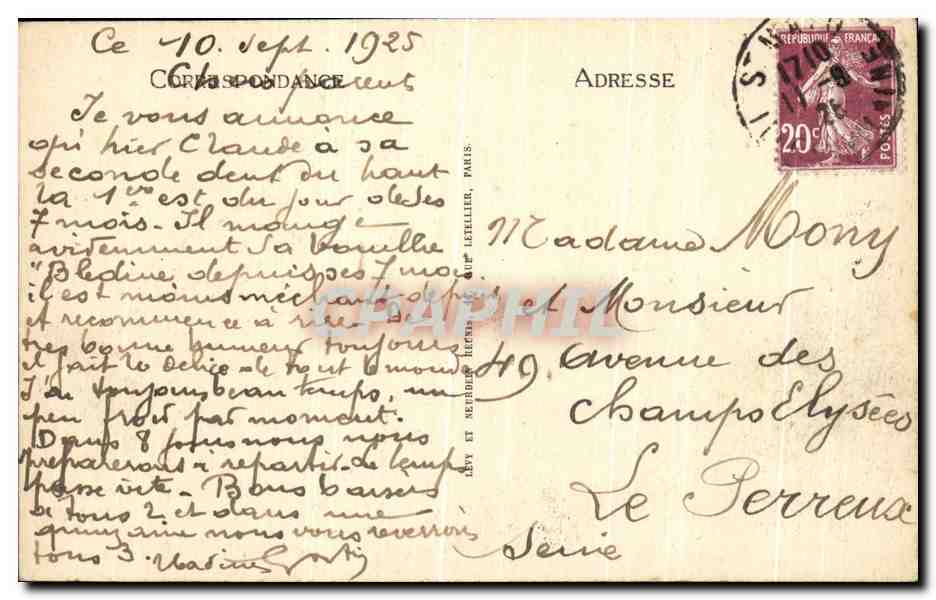 Ce 10 sept. 1925
CORRESPONDANCE
Chers parents
Je vous annonce
qu'hier Claude à sa
seconde dent du haut
la 1ère est du jour de ses
7 mois. Il mange
évidemment sa bouillie
"Blédine depuis ses 7 mois.
il est moins méchant depuis
et recommence à rire de
très bonne humeur toujours
il fait le délice de tout le monde
J'ai toujours beau temps, un
peu froid par moment.
Dans 8 jours nous nous
préparerons à repartir. Le temps
passe vite. Bons baisers
à tous 2 et dans une
quinzaine nous vous reverrons
tous 3.
LÉVY ET NEURDEIN RÉUNIS, RUE LETELLIER, PARIS.
ADRESSE
RÉPUBLIQUE FRANÇAISE
20c
POSTES
Madame Mony
et Monsieur
49 avenue des
Champs Elysées
Le Perreux
Seine
CPAPHIL